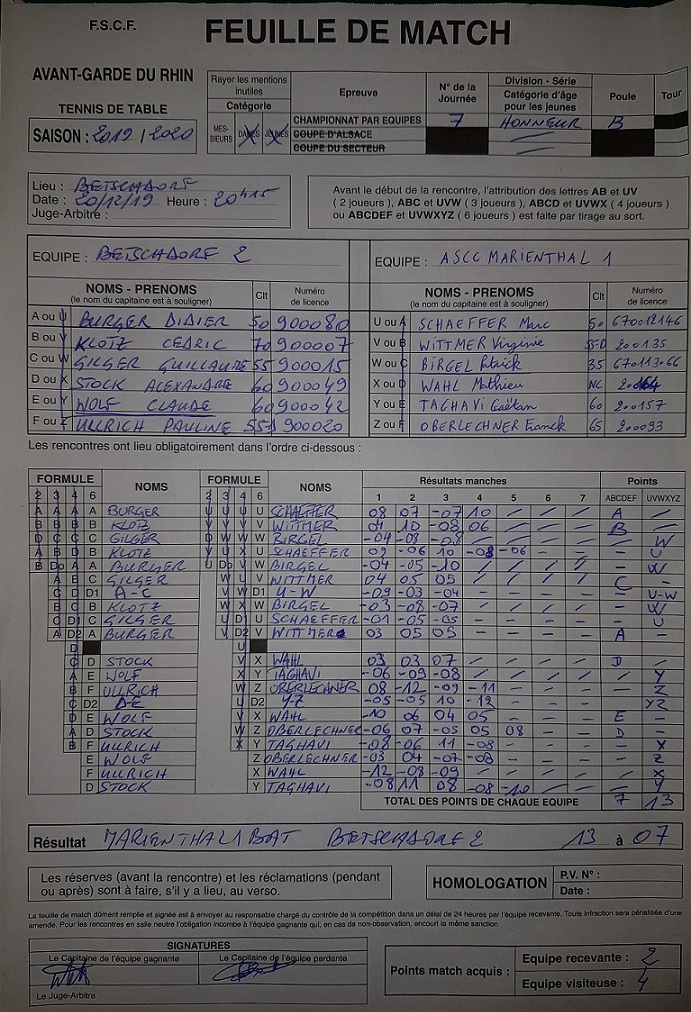 F.S.C.F.
FEUILLE DE MATCH
AVANT-GARDE DU RHIN
TENNIS DE TABLE
SAISON : 2019 / 2020
Rayer les mentions inutiles
Catégorie
MES-SIEURS DAMES JEUNES
Epreuve
CHAMPIONNAT PAR EQUIPES
COUPE D'ALSACE
COUPE DU SECTEUR
N° de la Journée
7
Division - Série
Catégorie d'âge pour les jeunes
HONNEUR
Poule
B
Tour
Lieu : BETSCHDORF
Date : 20/12/19 Heure : 20H15
Juge-Arbitre :
Avant le début de la rencontre, l'attribution des lettres AB et UV
( 2 joueurs ), ABC et UVW ( 3 joueurs ), ABCD et UVWX ( 4 joueurs )
ou ABCDEF et UVWXYZ ( 6 joueurs ) est faite par tirage au sort.
EQUIPE : BETSCHDORF 2
EQUIPE : ASCC MARIENTHAL 1
NOMS - PRENOMS (le nom du capitaine est à souligner) Clt Numéro de licence
A ou U BURGER DIDIER 50 900080
B ou V KLOTZ CEDRIC 70 900007
C ou W GILGER GUILLAUME 55 900015
D ou X STOCK ALEXANDRE 60 900049
E ou Y WOLF CLAUDE 60 900042
F ou Z ULLRICH PAULINE 55D 900020
NOMS - PRENOMS (le nom du capitaine est à souligner) Clt Numéro de licence
U ou A SCHAEFFER Marc 50 670012146
V ou B WITTMER Virginie 55D 200135
W ou C BIRGEL Patrick 35 670113066
X ou D WAHL Mathieu NC
Y ou E TAGHAVI Gaëtan 60 200157
Z ou F OBERLECHNER Franck 65 200093
Les rencontres ont lieu obligatoirement dans l'ordre ci-dessous :
FORMULE NOMS FORMULE NOMS Résultats manches Points
2 3 4 6 2 3 4 6 1 2 3 4 5 6 7 ABCDEF UVWXYZ
A BURGER U SCHAEFFER 08 07 -07 10 A
B KLOTZ V WITTMER 04 10 -08 06 B
C GILGER W BIRGEL -04 -08 -08 W
B KLOTZ U SCHAEFFER 09 -06 10 -08 -06 U
A BURGER W BIRGEL -04 -05 -10 W
C GILGER V WITTMER 04 05 05 C
D1 A-C D1 U-W -09 -03 -04 U-W
B KLOTZ W BIRGEL -03 -08 -07 W
C GILGER U SCHAEFFER -01 -05 -05 U
A BURGER V WITTMER 03 05 05 A
D STOCK X WAHL 03 03 07 D
E WOLF Y TAGHAVI -06 -09 -08 Y
F ULLRICH Z OBERLECHNER 08 -12 -09 -11 Z
D2 D-E D2 Y-Z -05 -05 10 -12 YZ
E WOLF X WAHL -10 06 04 05 E
D STOCK Z OBERLECHNER -06 07 -05 05 08 D
F ULLRICH Y TAGHAVI -08 -06 11 -08
E WOLF Z OBERLECHNER -03 04 -07 -08 Z
F ULLRICH X WAHL -12 -08 -09 X
D STOCK Y TAGHAVI -08 11 08 -08 -10 Y
TOTAL DES POINTS DE CHAQUE EQUIPE 7 13
Résultat MARIENTHAL 1 BAT BETSCHDORF 2 13 à 07
Les réserves (avant la rencontre) et les réclamations (pendant
ou après) sont à faire, s'il y a lieu, au verso.
HOMOLOGATION
P.V. N° :
Date :
La feuille de match dûment remplie et signée est à envoyer au responsable chargé du contrôle de la compétition dans un délai de 24 heures par l'équipe recevante. Toute infraction sera pénalisée d'une
amende. Pour les rencontres en salle neutre l'obligation incombe à l'équipe gagnante qui, en cas de non-observation, encourt la même sanction
SIGNATURES
Le Capitaine de l'équipe gagnante
Le Capitaine de l'équipe perdante
Le Juge-Arbitre
Points match acquis :
Equipe recevante : 2
Equipe visiteuse : 4